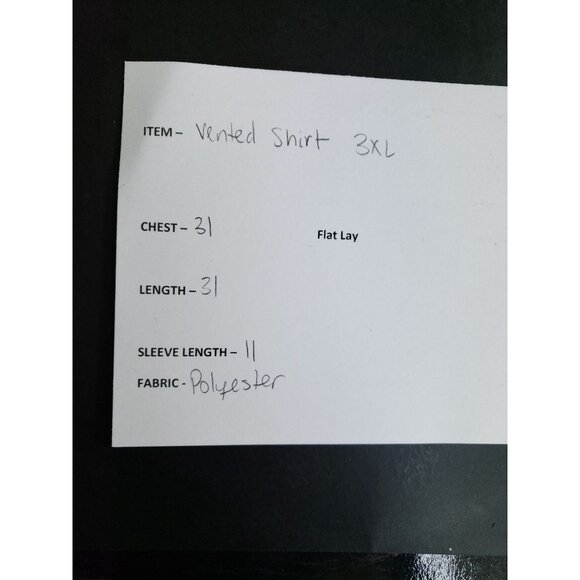 ITEM – Vented Shirt 3XL
CHEST – 31
Flat Lay
LENGTH – 31
SLEEVE LENGTH – 11
FABRIC - Polyester